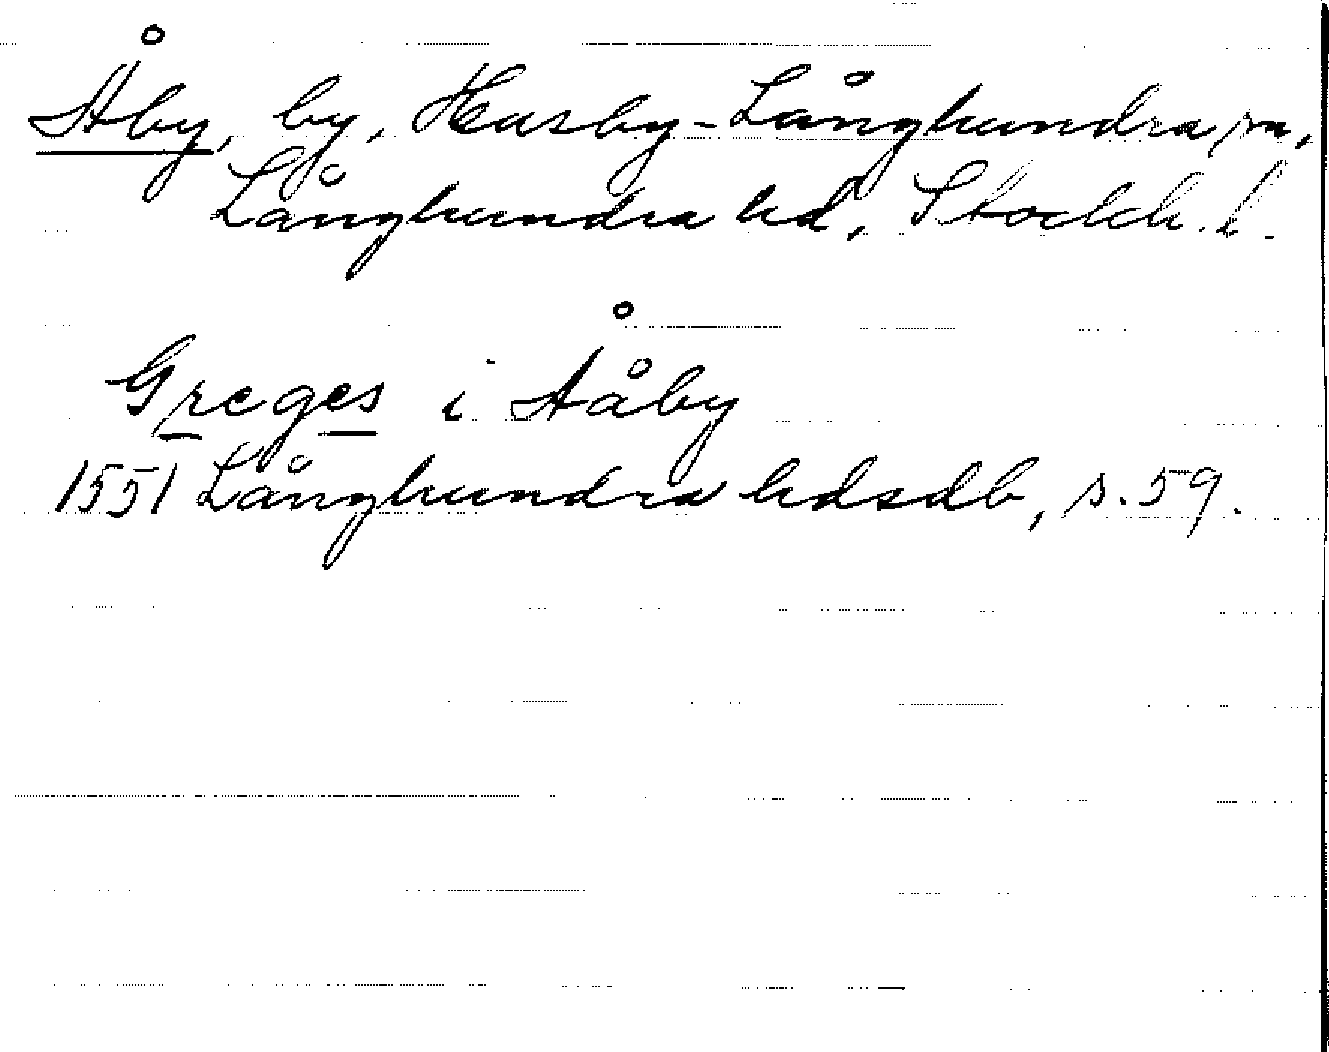 Åby, by, Husby-Långhundra sn,
Långhundra hd, Stockh. l.
Greges i Ååby
1551 Långhundra hdsdb, s. 59.